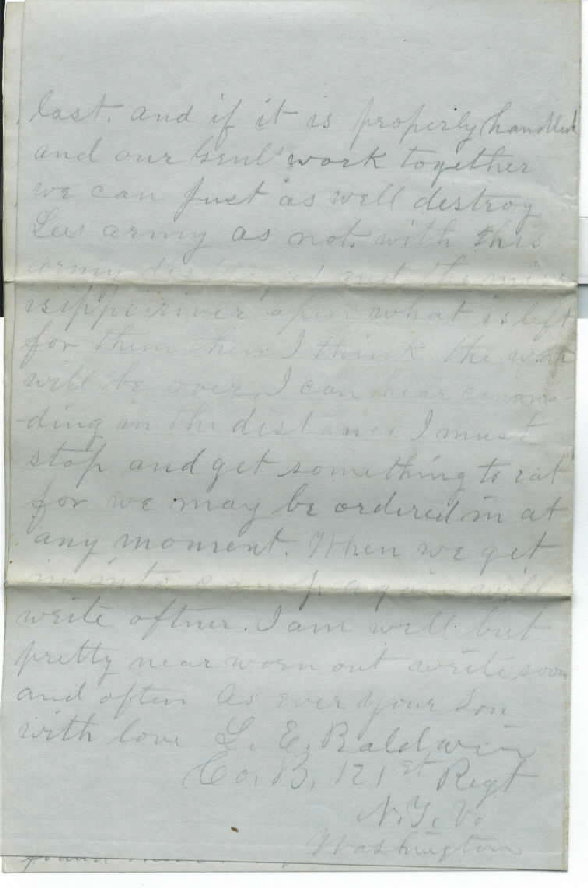 last. and if it is properly handled
and our Genl work together
we can just as well destroy
Lees army as not. with this
army and the miss
issippi river open what is left
for them then I think the war
will be over. I can hear canna
ding in the distance I must
stop and get something to eat
for we may be ordered in at
any moment. When we get
into camp again will
write oftner. I am well but
pretty near worn out write soon
and often As ever your Son
with love L. E. Baldwin
Co. B, 121st Regt
N. Y. V.
Washington